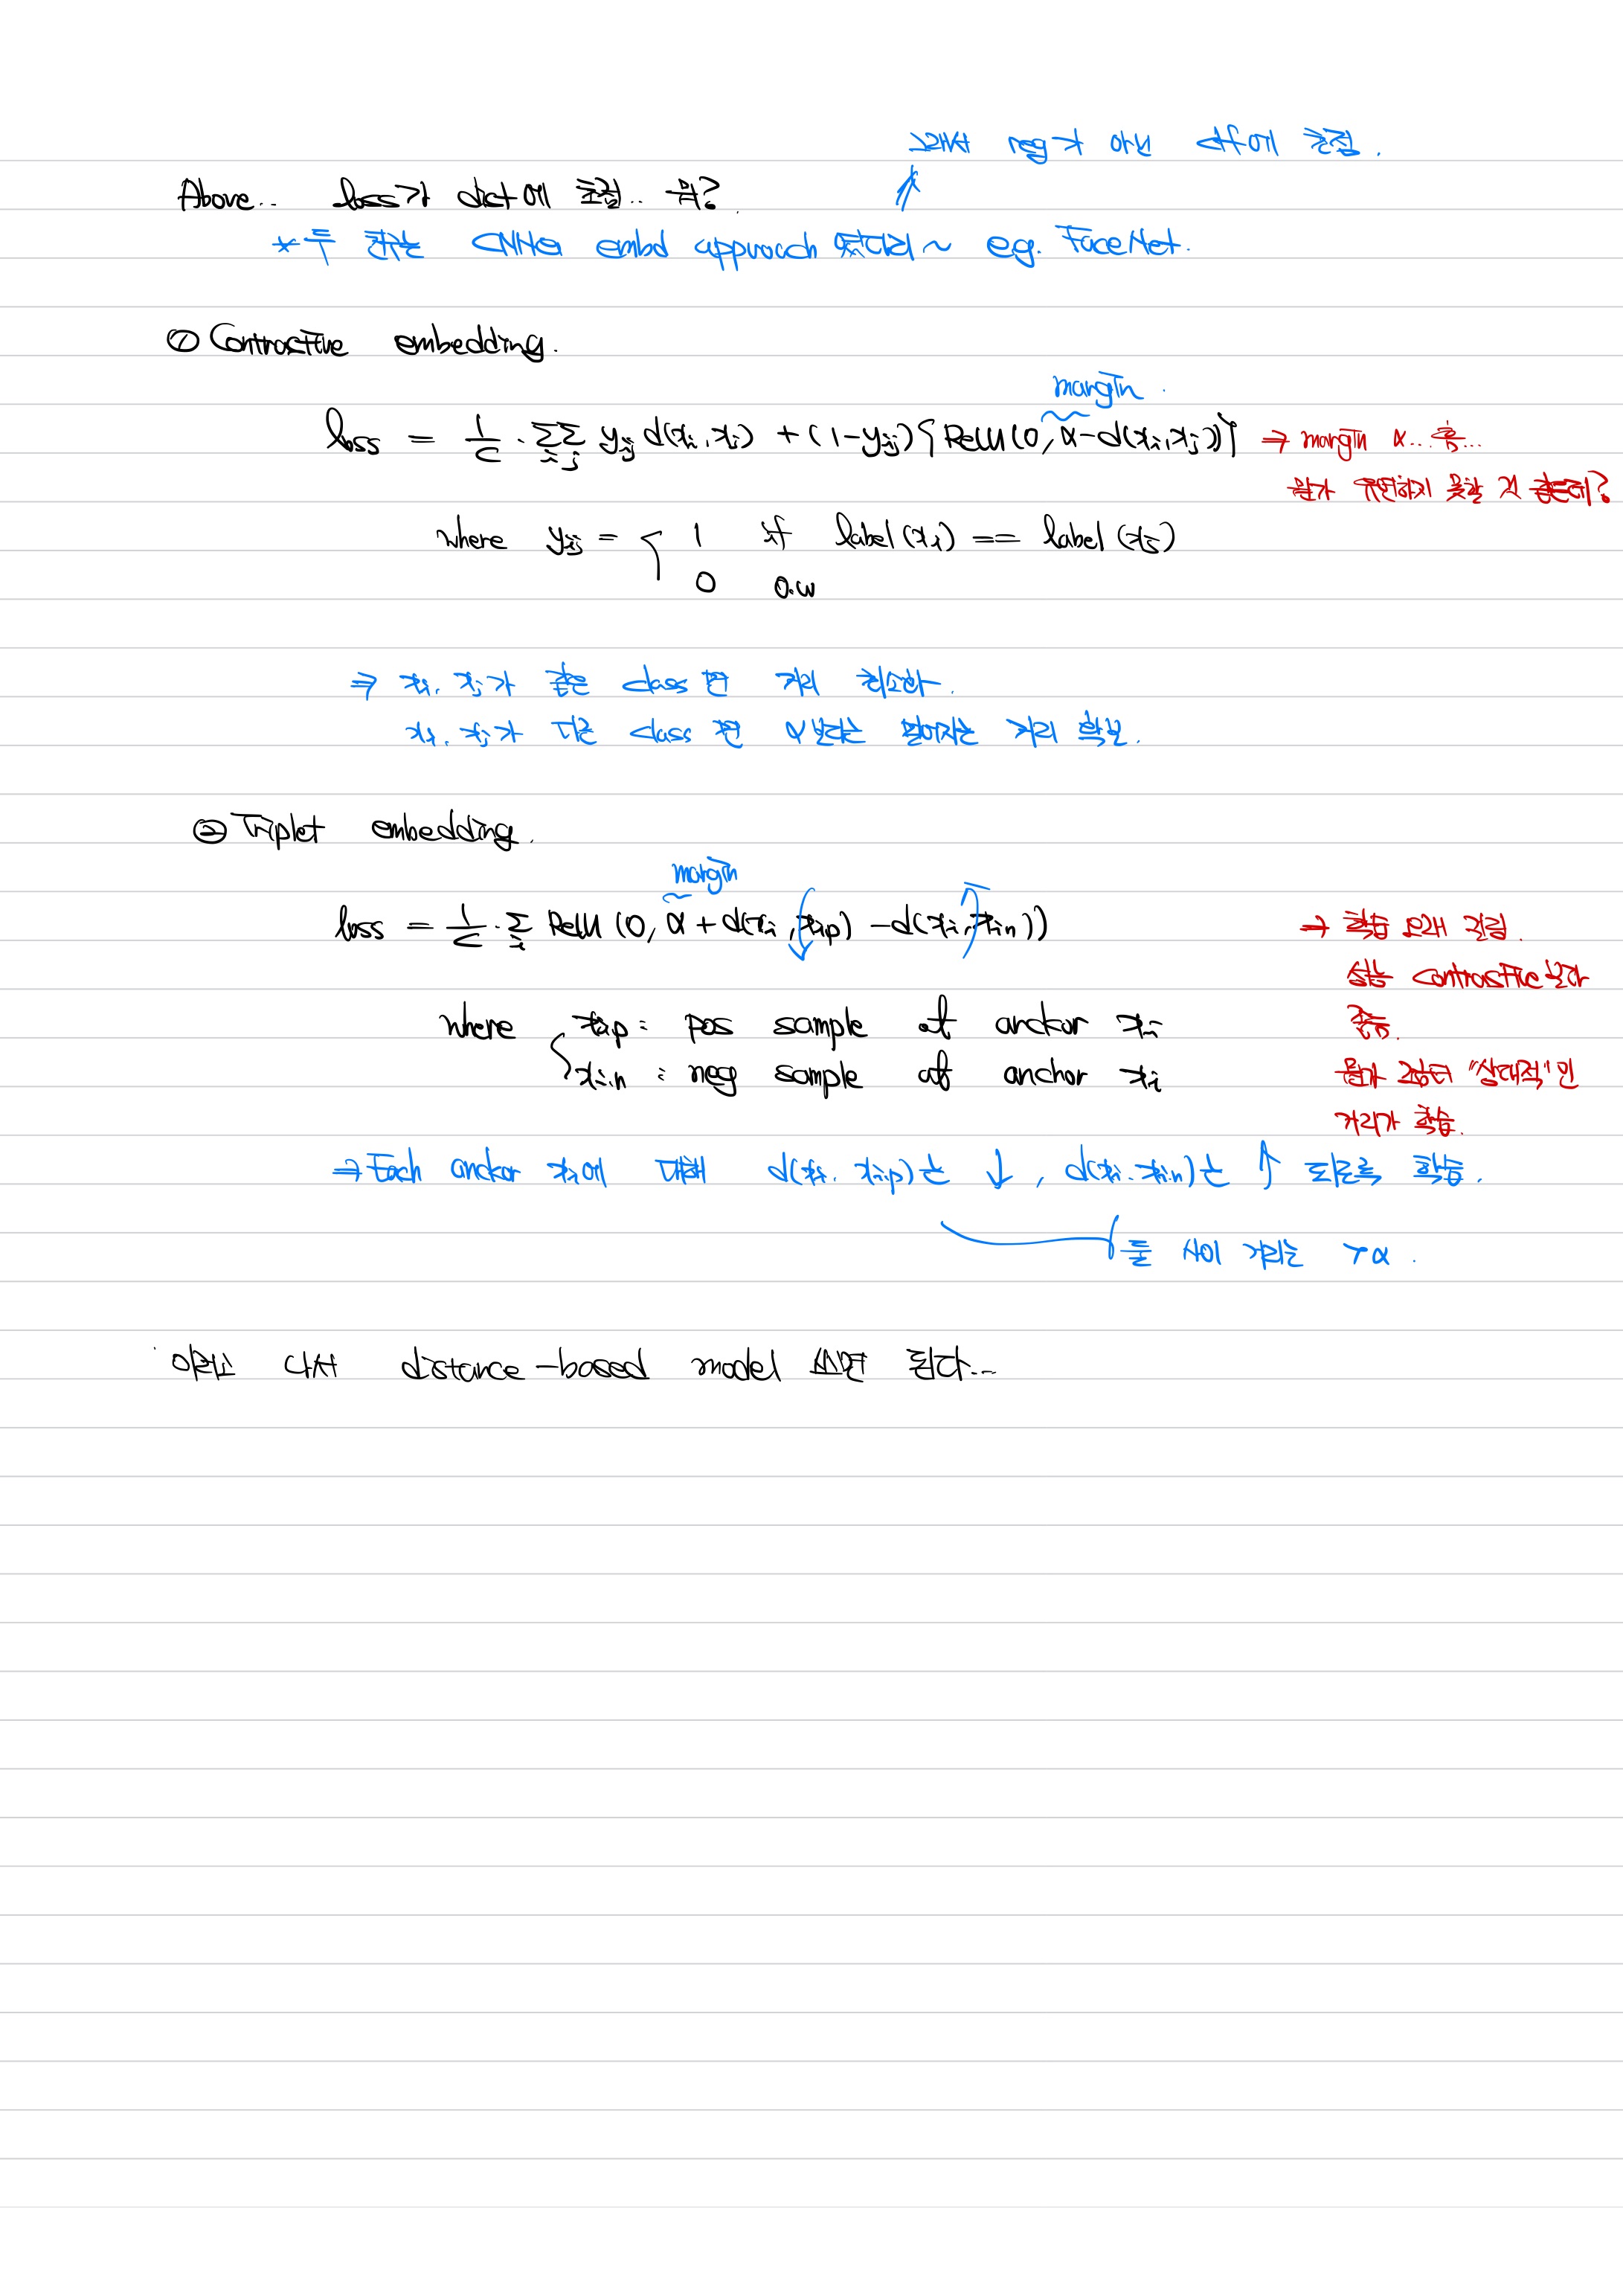 그래서 reg가 아닌 clf에 초점.
Above.. loss가 dist에 초점.. 뭐?
* 두 친구는 CNN의 embd approach 였더라~ e.g. FaceNet.
① Contrastive embedding.
margin
loss = 1/C · Σ_i Σ_j y_ij d(x_i, x_j) + (1-y_ij) { ReLU(0, α-d(x_i, x_j)) } ⇒ margin α... 흠...
뭔가 유연하지 못할 것 같은데?
where y_ij = { 1 if label(x_i) == label(x_j)
0 o.w
⇒ x_i, x_j가 같은 class면 거리 최소화.
x_i, x_j가 다른 class면 α보다는 멀어지는 거리 확보.
② Triplet embedding.
margin
loss = 1/C · Σ_i ReLU(0, α + d(x_i, x_i,p) - d(x_i, x_i,n)) → 학습 오래 걸림.
성능 contrastive보다
where { x_i,p : pos sample of anckor x_i 좋음.
x_i,n : neg sample of anchor x_i 뭔가 그룹더 "상대적"인
거리가 학습.
⇒ Each anckor x_i에 대해 d(x_i, x_i,p)는 ↓, d(x_i, x_i,n)는 ↑ 되도록 학습.
둘 사이 거리는 > α.
이러고 나서 distance-based model 쓰면 된다...